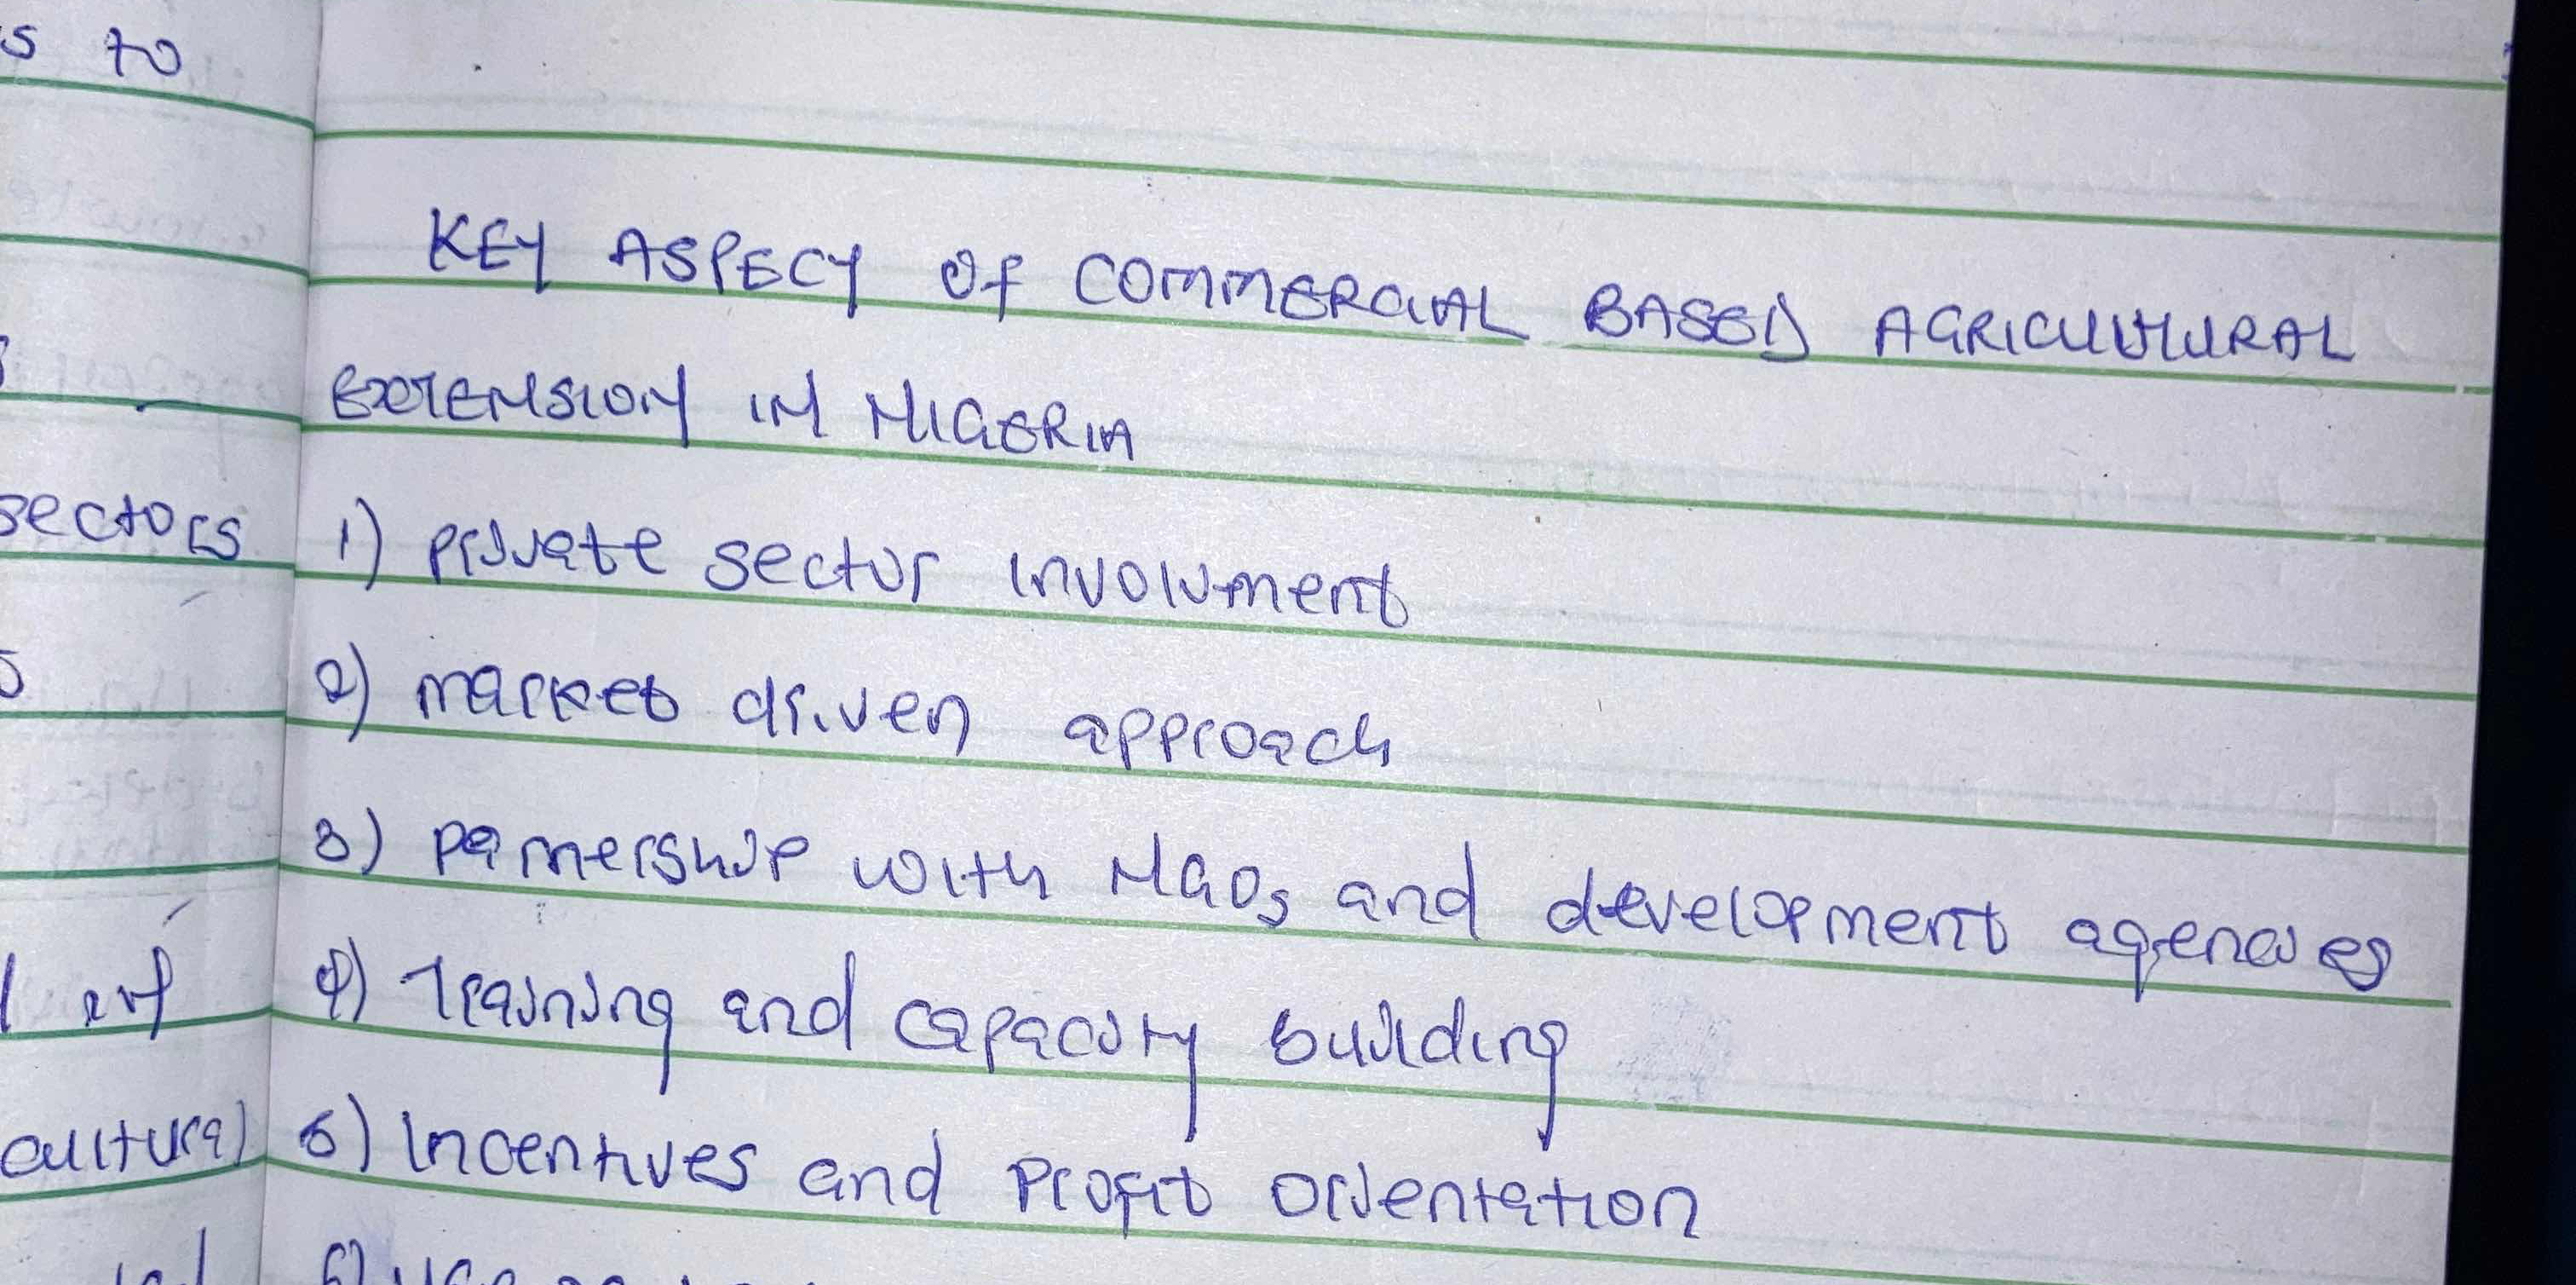 s to
sectors
of
cultural
KEY ASPECT OF COMMERCIAL BASED AGRICULTURAL
EXTENSION IN NIGERIA
1) private sector involvment
2) market driven approach
3) partnership with NGOs and development agencies
4) Training and capacity building
5) Incentives and profit orientation
6)